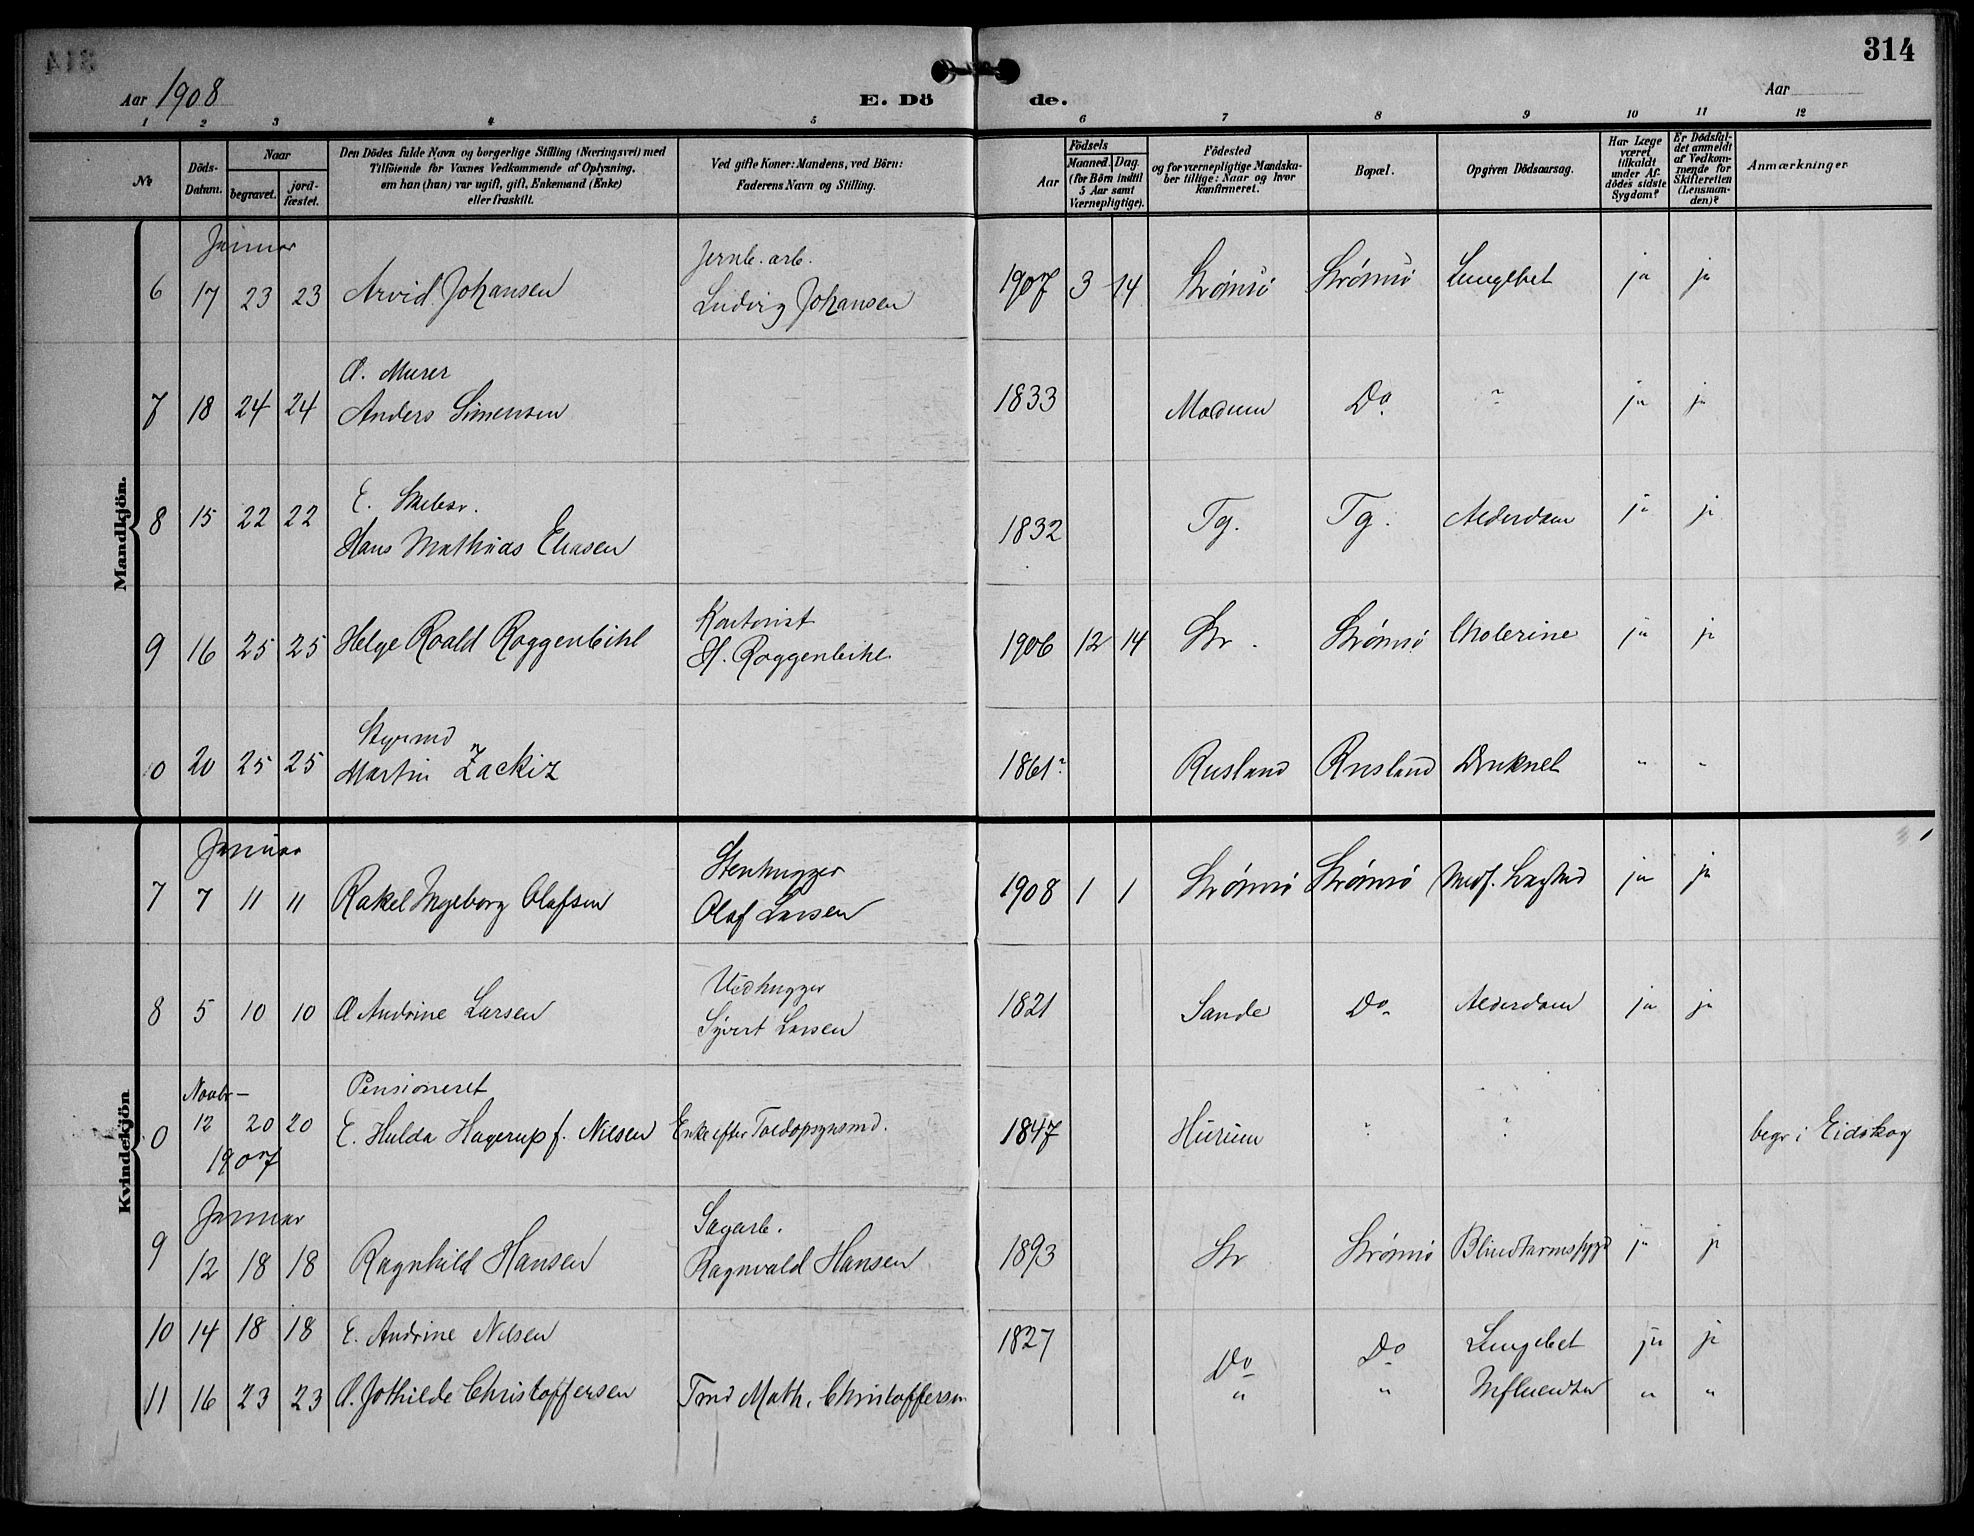 314
Aar 1908
E. Dö de.
Aar
1 2 3 4 5 6 7 8 9 10 11 12
No
Döds-Datum.
Naar
begravet.
jord-fæstet.
Den Dödes fulde Navn og borgerlige Stilling (Næringsvei) med
Tilföiende for Voxnes Vedkommende af Oplysning,
om han (han) var ugift, gift, Enkemand (Enke)
eller fraskilt.
Ved gifte Koner: Mandens, ved Börn:
Faderens Navn og Stilling.
Födsels
Aar
Maaned. Dag.
(for Börn indtil
5 Aar samt
Værnepligtige).
Födested
og for værnepligtige Mandska-
ber tillige: Naar og hvor
konfirmeret.
Bopæl.
Opgiven Dödsaarsag.
Har Læge
været
tilkaldt
under Af-
dödes sidste
Sygdom?
Er Dödsfal-
det anmeldt
af Vedkom-
mende for
Skifteretten
(Lensman-
den)?
Anmærkninger
Mandkjön.
Januar
Jernb. arb.
6 17 23 23 Arvid Johansen Ludvig Johansen 1907 3 14 Strømsø Strømsø Lungebet ja ja
G. Murer
7 18 24 24 Anders Simensen 1833 Modum Do " ja ja
E. Skibsr.
8 15 22 22 Hans Mathias Eliasen 1832 Tg. Tg. Alderdom ja ja
Kontorist
9 16 25 25 Helge Roald Roggenbihl H. Roggenbihl 1906 12 14 Str. Strømsø Cholerine ja ja
Styrmd
0 20 25 25 Martin Zackiz 1861? Rusland Rusland Druknet " "
Kvindekjön
Januar
Stenhugger
7 7 11 11 Rakel Ingeborg Olafsen Olaf Larsen 1908 1 1 Strømsø Strømsø Medf. ja ja
Vedhugger
8 5 10 10 G Andrine Larsen Syvert Larsen 1821 Sande Do Alderdom ja ja
Novbr — Pensioneret
0 12 20 20 E. Hulda Hagerup f. Nilsen Enke efter Toldopsynsmd. 1847 Hurum " " begr i Eidskog
1907
Januar
Sagarb.
9 12 18 18 Ragnhild Hansen Ragnvald Hansen 1893 Str Strømsø Blindtarmssygd ja ja
10 14 18 18 E. Andrine Nilsen 1827 Do Do Lungebet ja ja
11 16 23 23 G. Jothilde Christoffersen Tmd Math. Christoffersen " " Influentsa " "